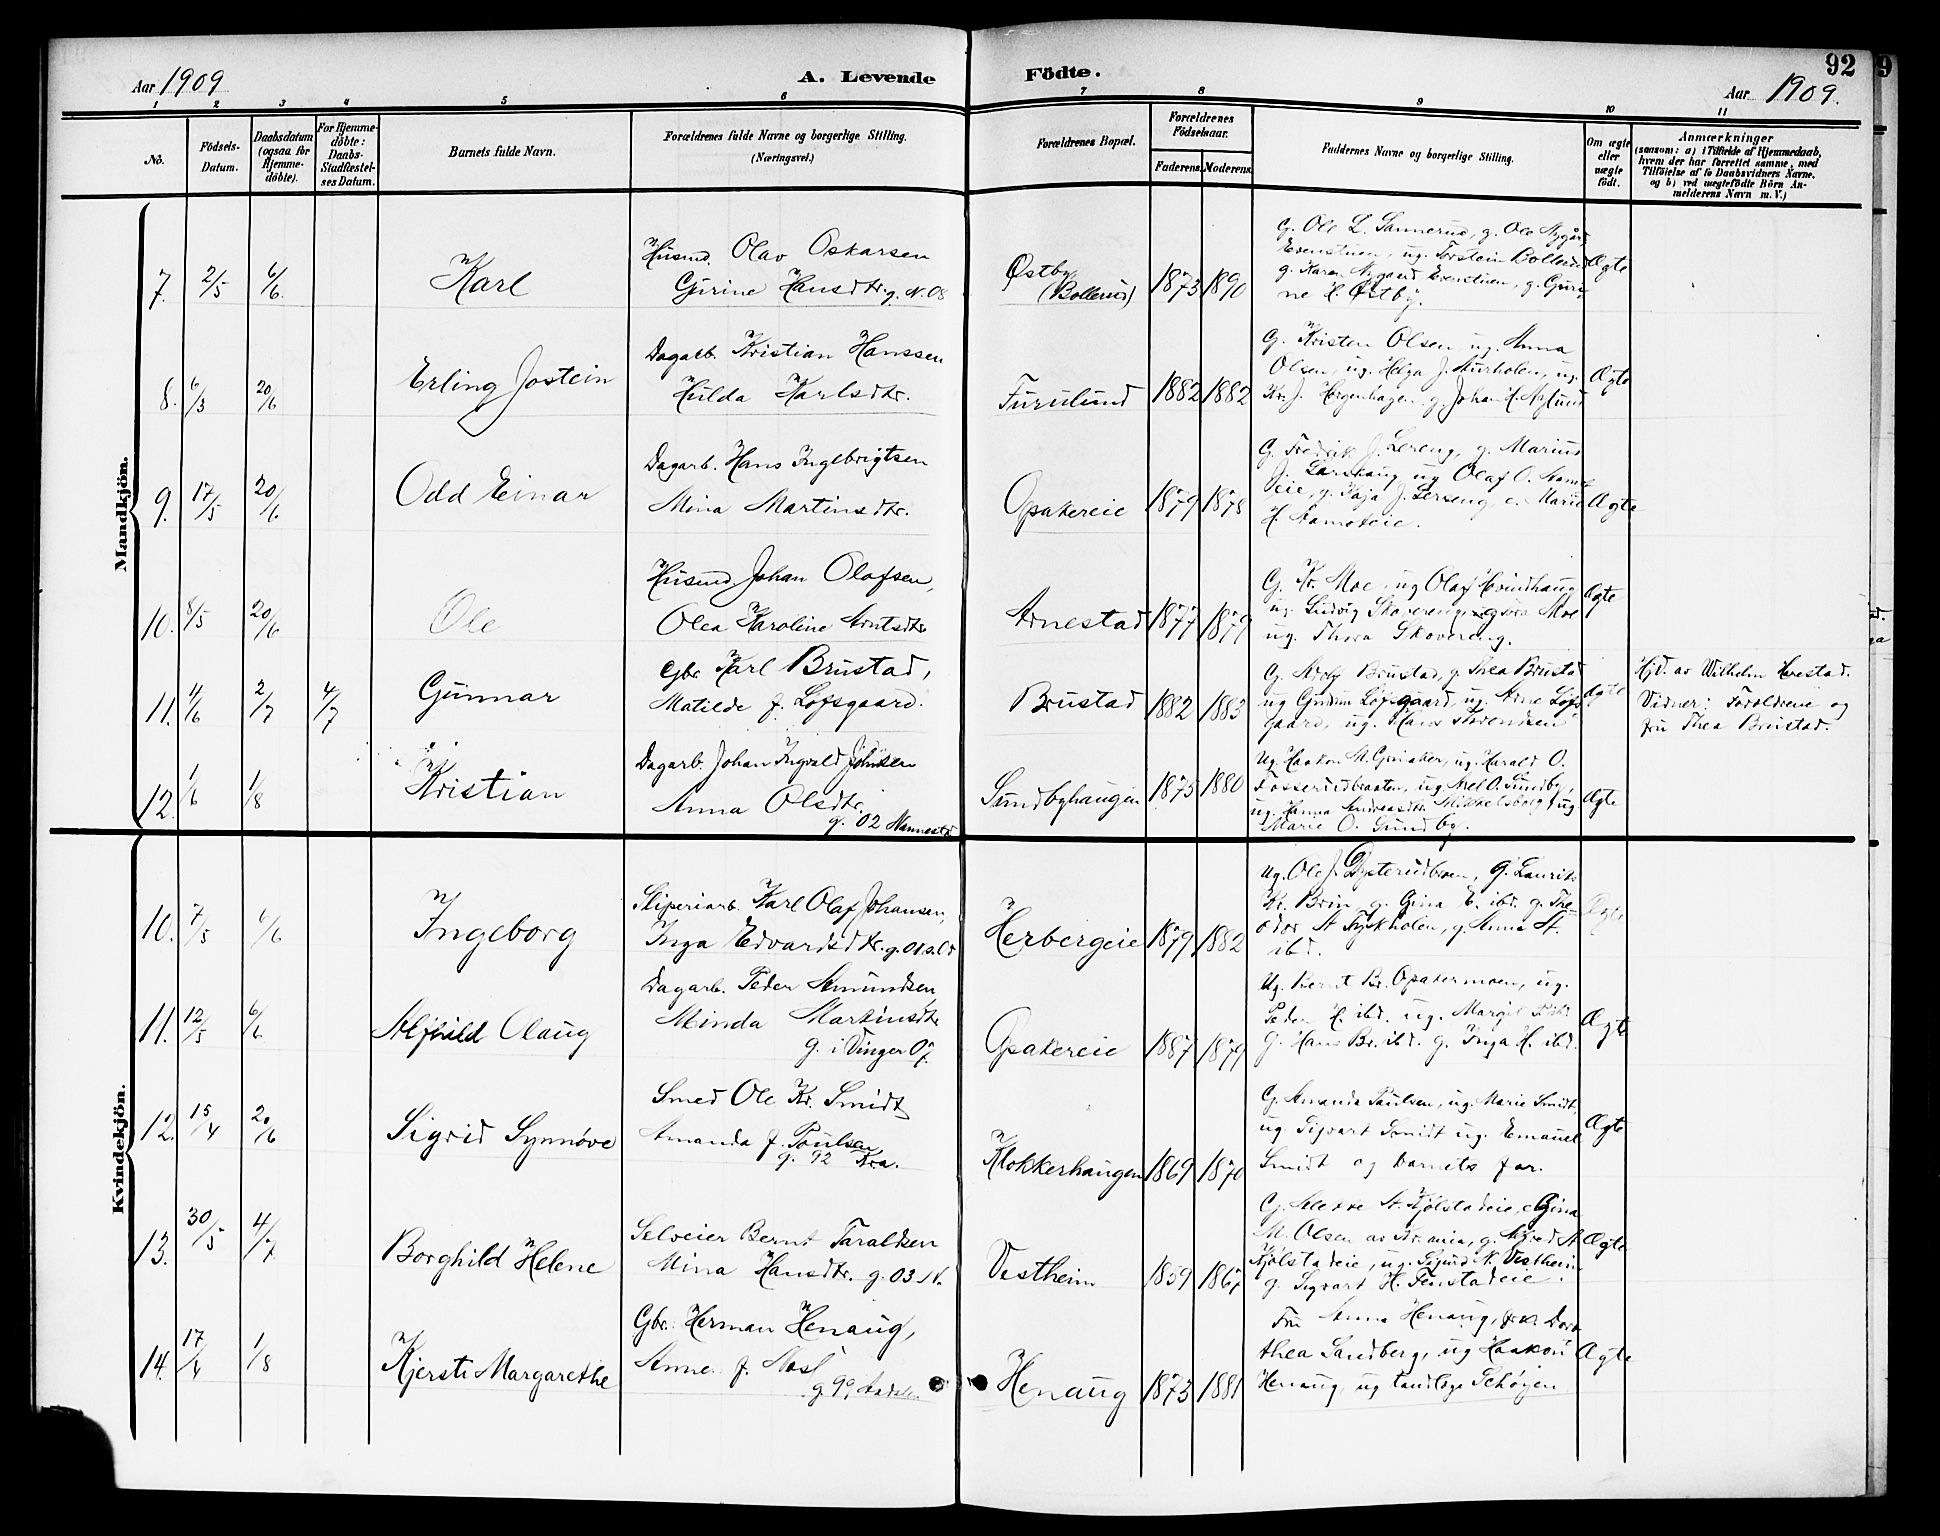 Aar 1909
A. Levende
Födte.
92
Aar 1909.
1 2 3 4 5 6 7 8 9 10 11
No.
Födsels-
Datum.
Daabsdatum
(ogsaa for
Hjemme-
döbte).
For Hjemme-
döbte:
Daabs-
Stadfæstel-
ses Datum.
Barnets fulde Navn.
Forældrenes fulde Navne og borgerlige Stilling.
(Næringsvei.)
Forældrenes Bopæl.
Forældrenes
Födselsaar.
Faderens.
Moderens.
Faddernes Navne og borgerlige Stilling.
Om ægte
eller
uægte
födt.
Anmærkninger
(saasom: a) i Tilfælde af Hjemmedaab,
hvem der har forrettet samme, med
Tilföielse af to Daabsvidners Navne.
og b) ved uægtefödte Börn An-
melderens Navn m. V.)
Mandkjön.
7. 2/5 6/6 Karl
Husmd. Olav Oskarsen
Gurine Hansdtr. g. N. 08
Østby
(Bollerud)
1873 1890
G. Ole L. Sannerud, g. Ole Nygård
Evenstuen, ug. Torstein Bollerud
g. Karen Nygaard Evenstuen, g. Guri-
ne H. Østby.
Ægte
8. 6/3 20/6 Erling Jostein
Dagarb. Kristian Hanssen
Hilda Karlsdtr.
Furulund
1882 1882
G. Kristen Olsen, ug. Anna
Olsen, ug. Helga J. Aurholen, ug.
Kr. J. Hergenhagen g. Johan H. Nylund
Ægte
9. 17/5 20/6 Odd Einar
Dagarb. Hans Ingebrigtsen
Mina Martinsdtr.
Opakereie
1879 1878
G. Fredrik J. Lereng, g. Marius
J. Larshaug ug Olaf O.
eie, g. Kaja J. Lereng, e. Marie
H.
Ægte
10. 8/5 20/6 Ole
Husmd. Johan Olafsen,
Olea Karoline Arntsdtr
Arnestad
1877 1879
G. Kr. Moe, ug Olaf
ug. Ludvig Skovereng, Moe
ug. Thora Skovereng.
Ægte
11. 1/6 2/7 4/7 Gunnar
Gbr. Karl Brustad,
Matilde f. Løfsgaard.
Brustad
1882 1883
G. Adolf Brustad, g. Thea Brustad
ug Gudrun Løfsgaard, ug. Arne Løfs
gaard, ug. Hans Throndsen
Ægte
Hjd. av Wilhelm Herestad.
Vidner: Forældrene og
fru Thea Brustad.
12. 1/6 1/8 Kristian
Dagarb. Johan Ingvald Johnsen
Anna Olsdtr.
g. '02 Nannestad
Sundbyhaugen
1875 1880
Ug. Haakon M. Griniaker, ug. Harald O.
Fosserudbraaten, ug. Axel O. Sundby,
ug. Hanna Andreasdtr. Mikkelsborg, ug
Marie O. Sundby.
Ægte
Kvindekjön.
10. 7/5 6/6 Ingeborg
Sliperiarb. Karl Olaf Johansen,
Inga Edvardsdtr. g. 01
Herbergeie
1879 1882
Ug. Ole J. Dysterudbroen, g. Laurits
Kr. Brin, g. Gina E. ibd. g. The-
odor A. g. Anna A.
ibd.
Ægte
11. 12/5 6/6 Alfhild Olaug
Dagarb. Peder Amundsen
Minda Martinsdtr
g. i Vinger 07.
Opakereie
1887 1879
Ug. Bernt Br. Opakermoen, ug.
Peder H. ibd. ug. Margit
g. Hans Br. ibd. g. Inga H. ibd.
Ægte
12. 15/4 20/6 Sigrid Synnöve
Smed Ole Kr. Smidt
Amanda f. Poulsen
g. 92 Kra.
Klokkerhaugen
1869 1870
G. Amanda Paulsen, ug. Marie Smidt,
ug. Sigvart Smidt ug. Emanuel
Smidt og barnets far.
Ægte
13. 30/5 4/7 Borghild Helene
Selveier Bernt Taraldsen
Mina Hansdtr. g. 03 N.
Vestheim
1859 1867
G. A. Kjølstadeie, e Gina
M. Olsen av Kr.ania, g. A
Kjølstadeie, ug. Sigurd N. Vestheim
g. Sigvart H. Finstadeie.
Ægte
14. 17/4 1/8 Kjersti Margarethe
Gbr. Herman Henaug,
Anne f. Næs
g. 99
Henaug
1873 1881
Fru Anna Henaug, frk. Doro
thea Sandberg, ug Haakon
Henaug, ug tandlæge Schøyen
Ægte